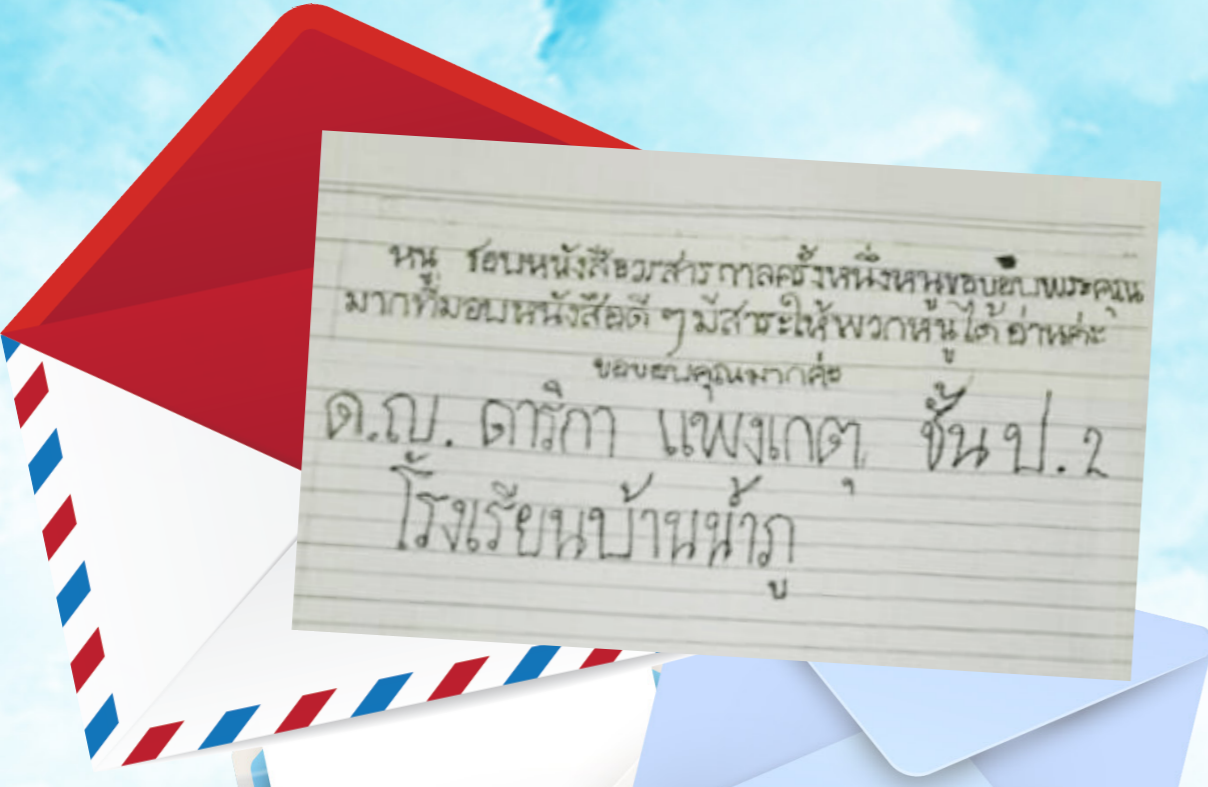 หนู ชอบหนังสือวรสารกาลครั้งหนึ่งหนูขอบขอบพระคุณ
มากที่มอบหนังสือดี ๆ มีสาระให้พวกหนูได้อ่านค่ะ
ขอบขอบคุณมากค่ะ
ด.ญ. ดาริกา แพงเกตุ ชั้น ป.2
โรงเรียนบ้านน้ำภู